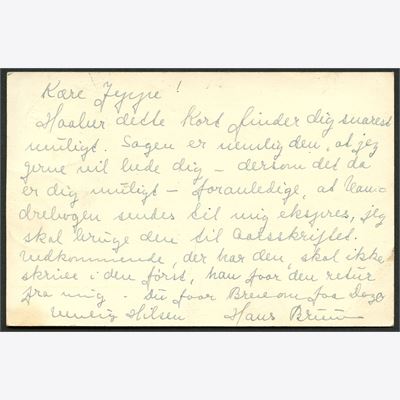 Kære Jeppe!
Haaber dette Kort finder dig snarest
muligt. Sagen er nemlig den, at jeg
gerne vil bede dig – dersom det da
er dig muligt – foranledige, at Van-
drebogen sendes til mig ekspres, jeg
skal bruge den til Aarsskriftet.
Vedkommende, der har den, skal ikke
skrive i den først, han faar den retur
fra mig. Du faar Brev om faa Dage
Venlig Hilsen Hans Bruun